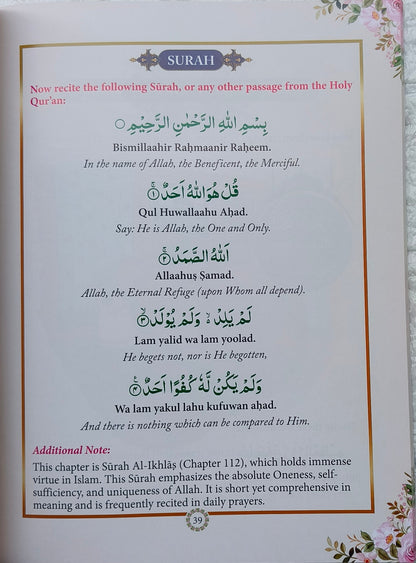 SURAH
Now recite the following Sūrah, or any other passage from the Holy
Qur'an:
بِسْمِ اللهِ الرَّحْمٰنِ الرَّحِيْمِ ○
Bismillaahir Raḥmaanir Raḥeem.
In the name of Allah, the Beneficent, the Merciful.
قُلْ هُوَ اللهُ اَحَدٌ ۚ﴿۱﴾
Qul Huwallaahu Aḥad.
Say: He is Allah, the One and Only.
اَللهُ الصَّمَدُ ۚ﴿۲﴾
Allaahuṣ Ṣamad.
Allah, the Eternal Refuge (upon Whom all depend).
لَمْ يَلِدْ ۙ وَلَمْ يُوْلَدْ ۙ﴿۳﴾
Lam yalid wa lam yoolad.
He begets not, nor is He begotten,
وَلَمْ يَكُنْ لَّهٗ كُفُوًا اَحَدٌ ﴿۴﴾
Wa lam yakul lahu kufuwan aḥad.
And there is nothing which can be compared to Him.
Additional Note:
This chapter is Sūrah Al-Ikhlāṣ (Chapter 112), which holds immense
virtue in Islam. This Sūrah emphasizes the absolute Oneness, self-
sufficiency, and uniqueness of Allah. It is short yet comprehensive in
meaning and is frequently recited in daily prayers.
39